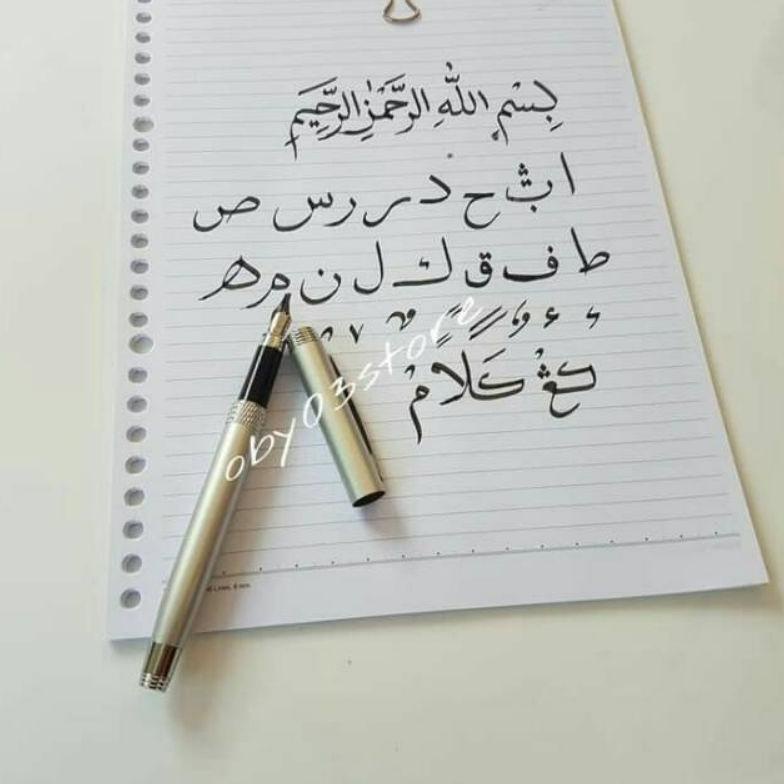 بِسْمِ اللّٰهِ الرَّحْمٰنِ الرَّحِيْمِ
ا ث ح د ر ر س ص
ط ف ق ك ل ن م ه
كَلَامٌ
oby03store